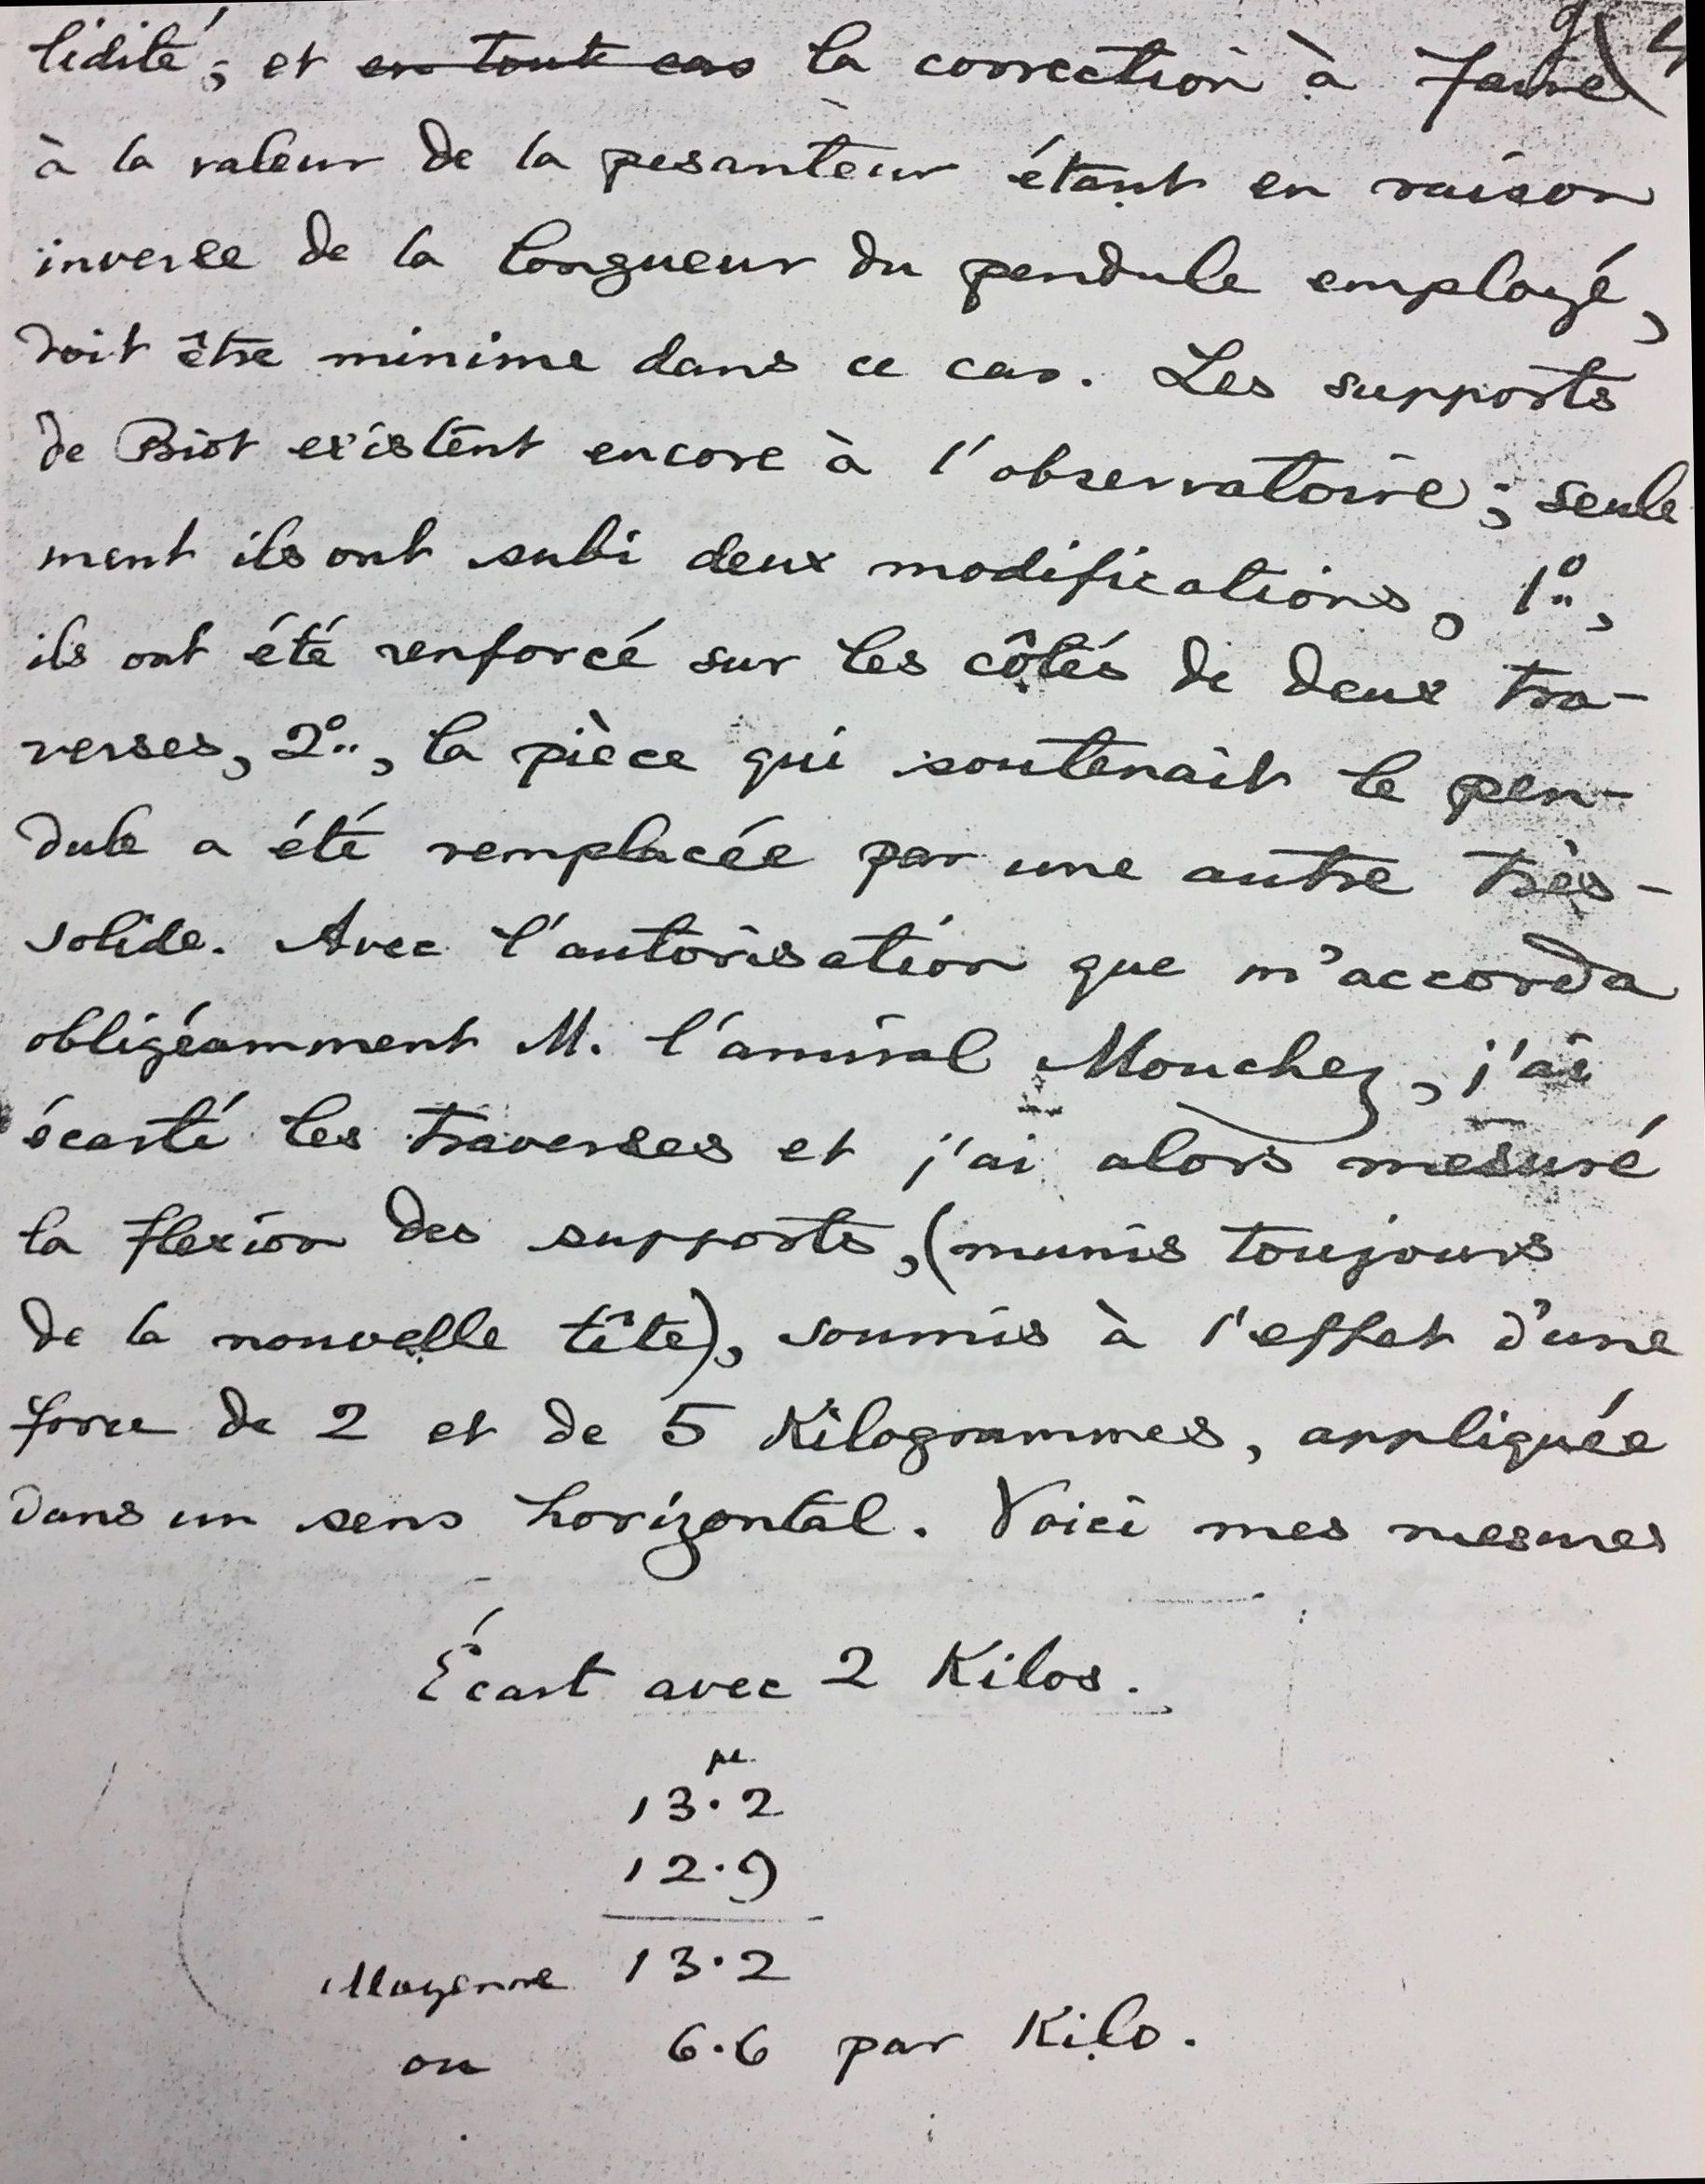 lidité; et en tout cas la correction à faire
à la valeur de la pesanteur étant en raison
inverse de la longueur du pendule employé,
doit être minime dans ce cas. Les supports
de Biot existent encore à l'observatoire; seule
ment ils ont subi deux modifications, 1º,
ils ont été renforcé sur les côtés de deux tra-
verses, 2º, la pièce qui soutenait le pen-
dule a été remplacée par une autre très-
solide. Avec l'autorisation que m'accorda
obligéamment M. l'amiral Mouchez, j'ai
écarté les traverses et j'ai alors mesuré
la flexion des supports, (munis toujours
de la nouvelle tête), soumis à l'effet d'une
force de 2 et de 5 Kilogrammes, appliquée
dans un sens horizontal. Voici mes mesures
Écart avec 2 Kilos.
µ.
13.2
12.9
Moyenne 13.2
ou 6.6 par Kilo.